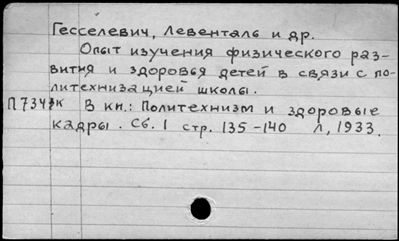 Гесселевич, Левенталь и др.
Опыт изучения физического раз-
вития и здоровья детей в связи с по-
литехнизацией школы.
П7343к В кн.: Политехнизм и здоровые
кадры. Сб. 1 стр. 135-140 Л, 1933.